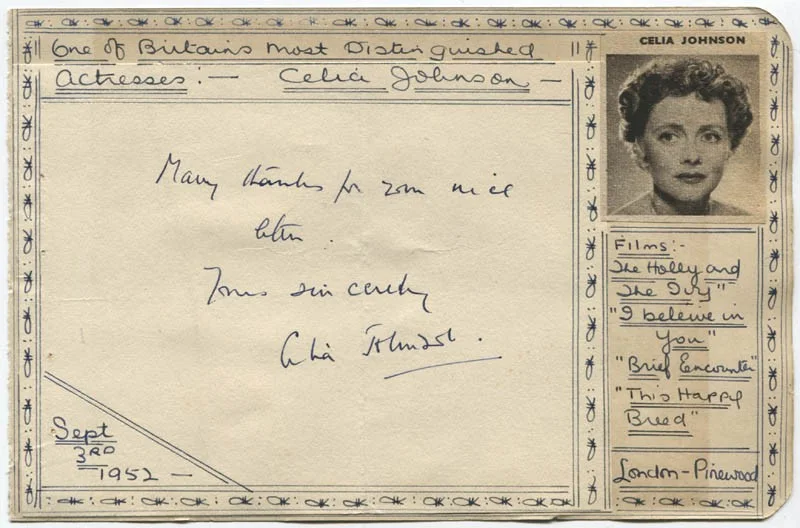 One of Britains most Distinguished
Actresses:— Celia Johnson —
Many thanks for your nice
letter.
Yours sincerely
Celia Johnson.
Sept
3RD
1952 —
CELIA JOHNSON
Films:-
The Holly and
The Ivy"
"I beleive in
You"
"Brief Encounter"
"This Happy
Breed"
London-Pinewood